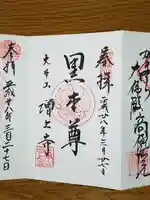 大佛殿
高徳院
奉拝
平成廿八年三月廿七日
黒本尊
大本山 増上寺
奉拝
平成廿八年三月二十七日